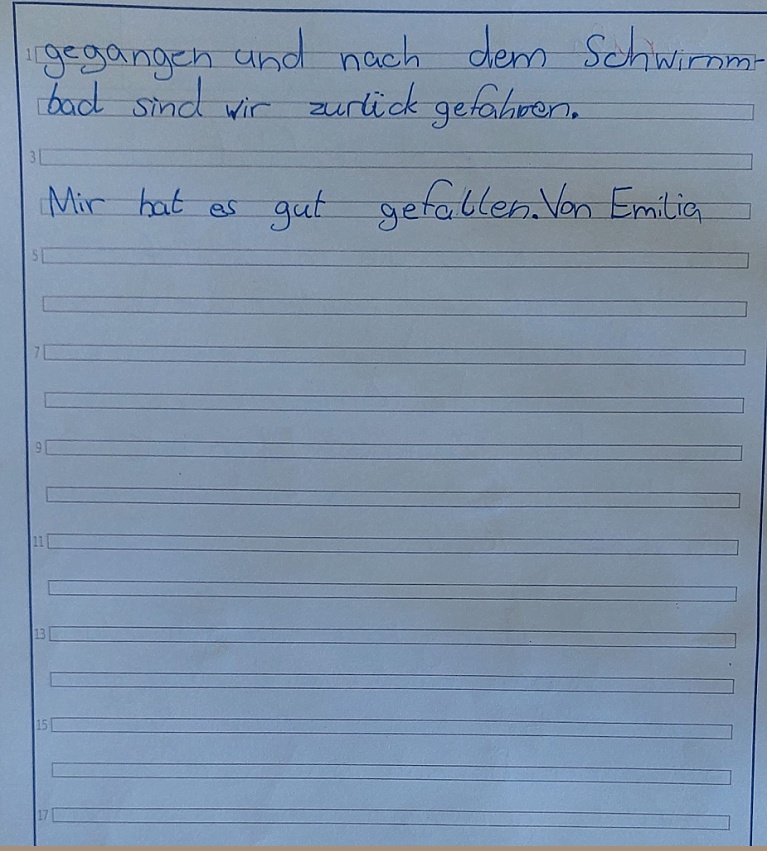 1 gegangen und nach dem Schwimm-
bad sind wir zurück gefahren.
3
Mir hat es gut gefallen. Von Emilia
5
7
9
11
13
15
17